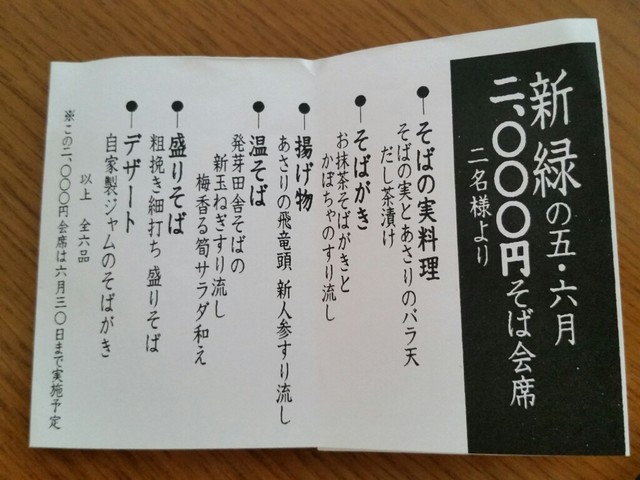 新緑の五・六月
二、〇〇〇円そば会席
二名様より
●―そばの実料理
そばの実とあさりのバラ天
だし茶漬け
●―そばがき
お抹茶そばがきと
かぼちゃのすり流し
●―揚げ物
あさりの飛竜頭 新人参すり流し
●―温そば
発芽田舎そばの
新玉ねぎすり流し
梅香る筍サラダ和え
●―盛りそば
粗挽き細打ち 盛りそば
●―デザート
自家製ジャムのそばがき
以上 全六品
※この二、〇〇〇円会席は六月三〇日まで実施予定